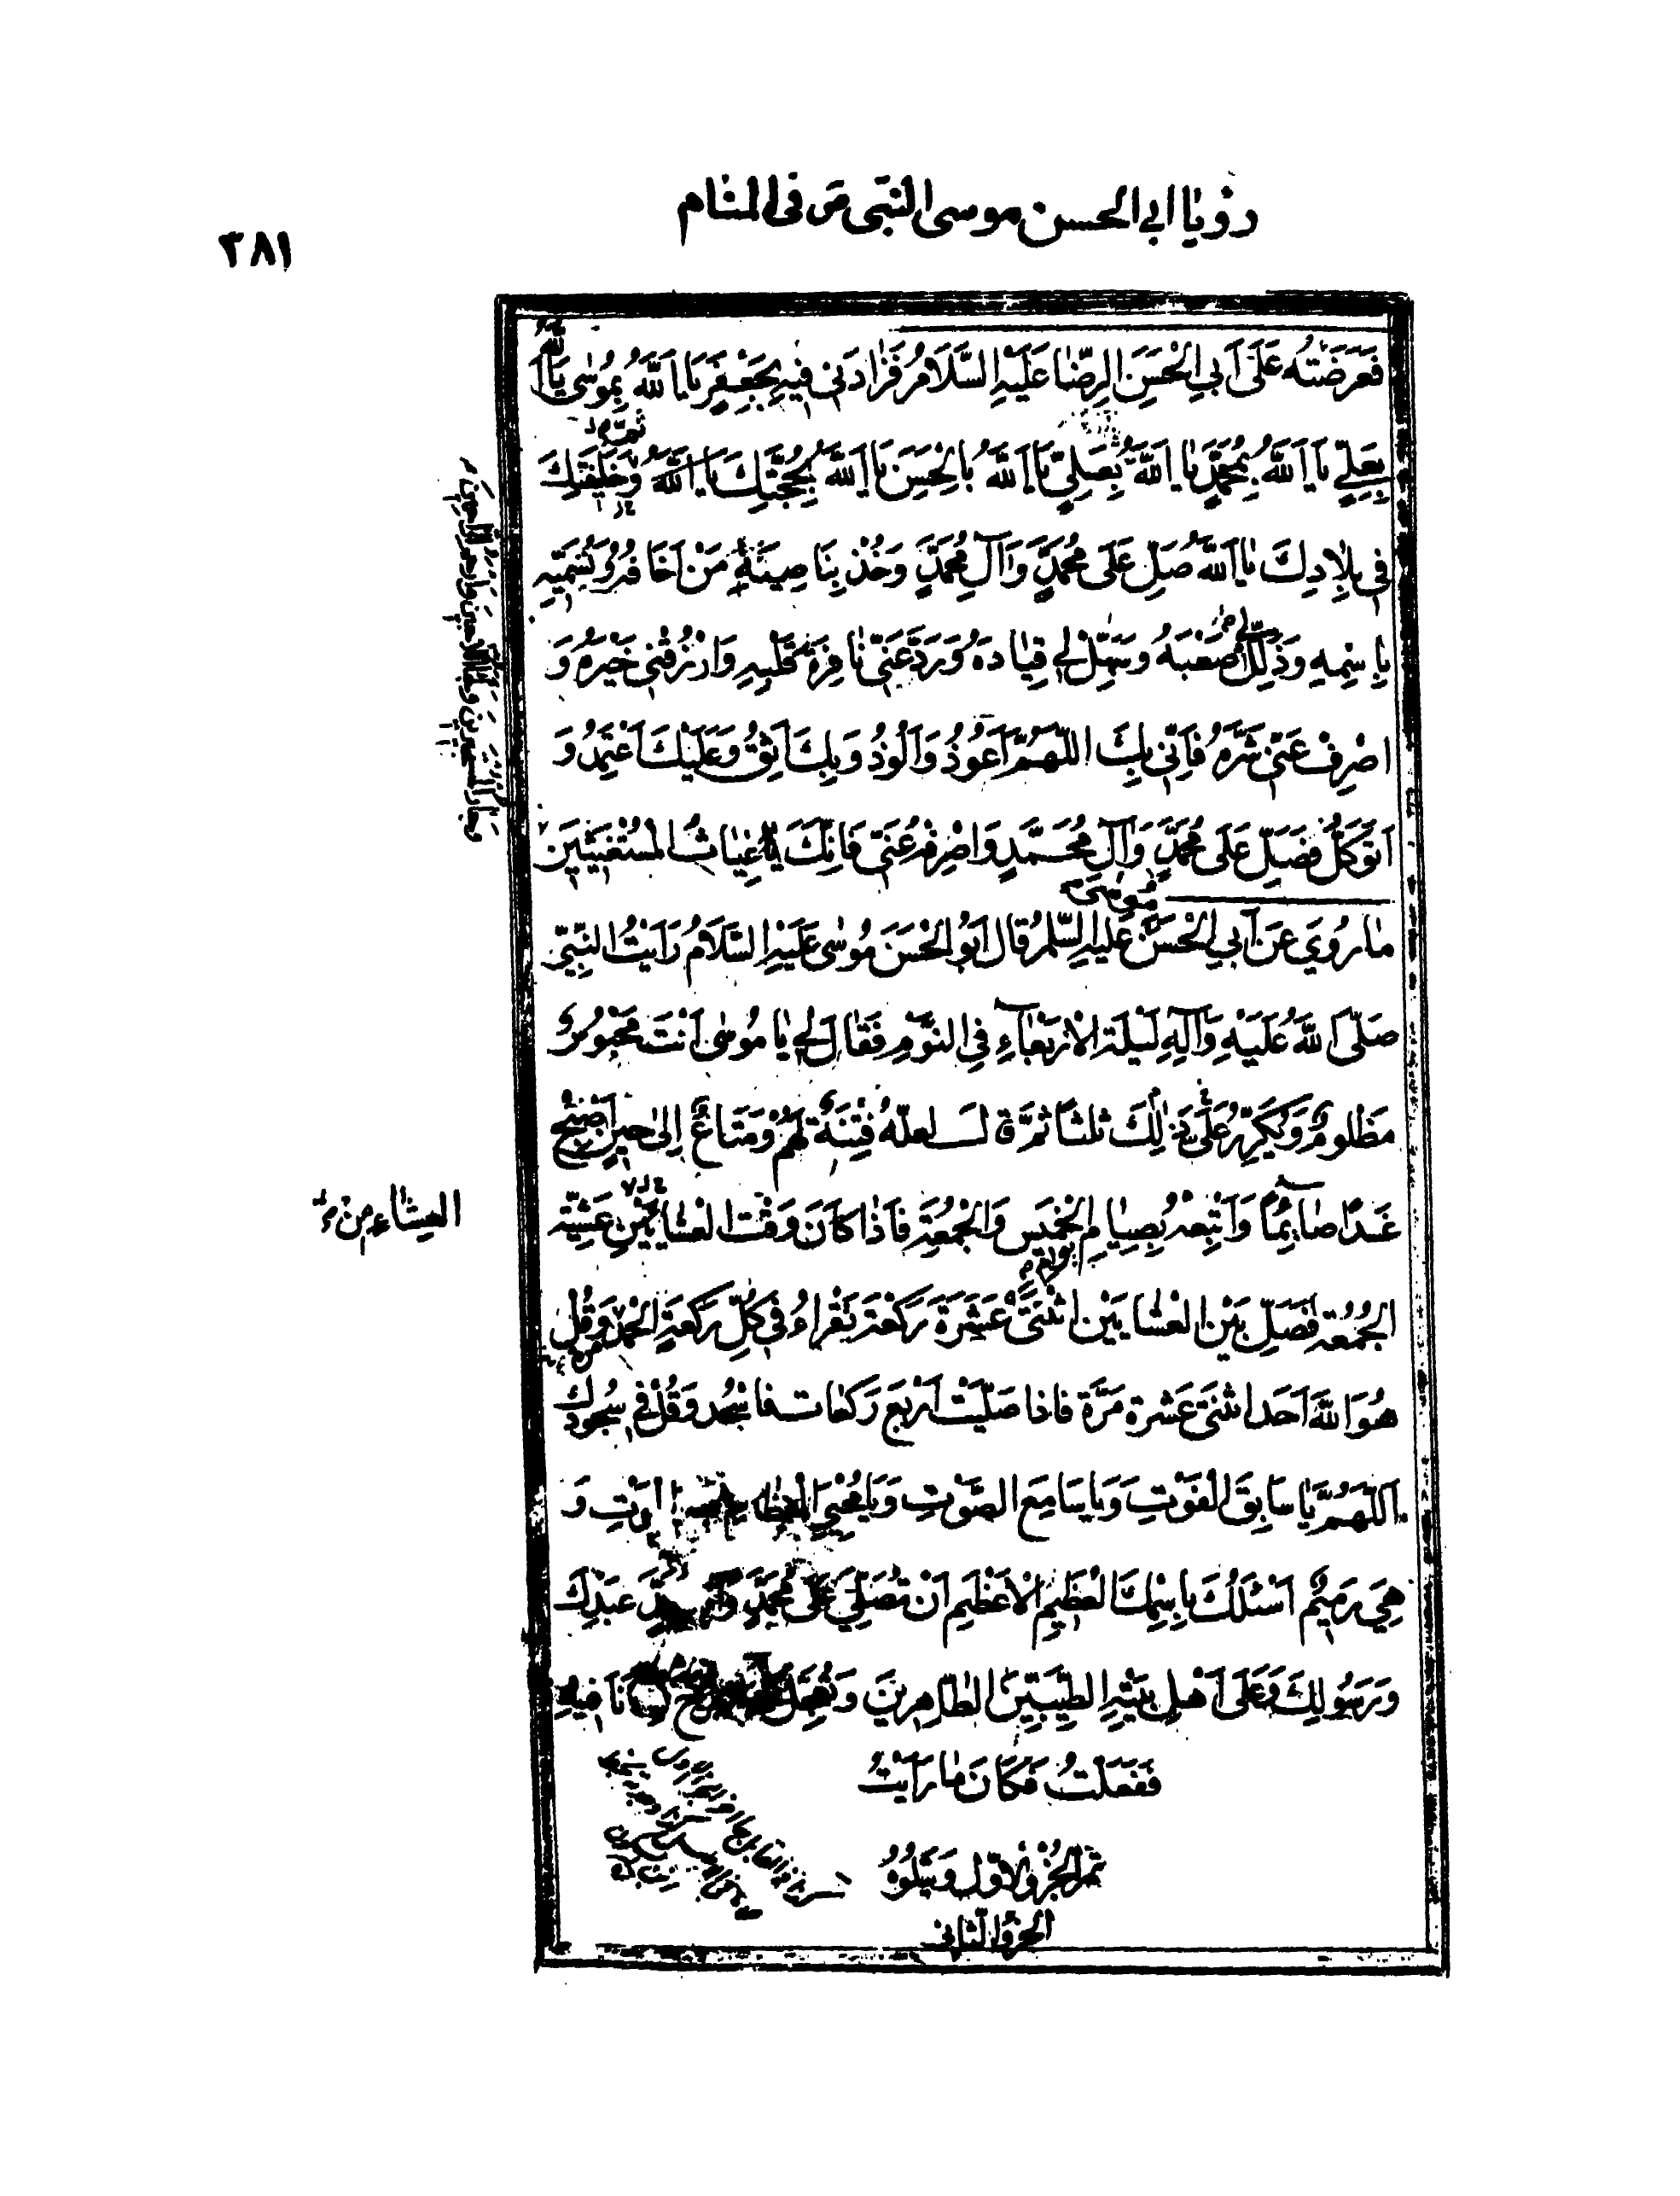 رؤيا ابي الحسن موسى النبى ص فى المنام
٣٨١
فَعَرَضْتُه عَلَى اَبِي الْحَسَنِ الرِّضٰا عَلَيْهِ السَّلَامُ فَزٰادَنى فيهِ بِجَعْفَرٍ يٰا اَللَّهُ بِمُوسٰى يٰا اَللّٰهُ
بِعَلِيٍّ يٰا اَللَّهُ بِمُحَمَّدٍ يٰا اَللَّهُ بِعَلِيٍّ يٰا اَللَّهُ بِالْحَسَنِ يٰا اَللَّهُ بِحُجَّتِكَ يٰا اَللَّهُ وَخَليفَتِكَ
فى بِلٰادِكَ يٰا اَللَّهُ صَلِّ عَلَى مُحَمَّدٍ وَآلِ مُحَمَّدٍ وَخُذْ بِنٰاصِيَةِ مَنْ اَخٰافُهُ وَتُسَمّيهِ
بِاسْمِهِ وَذَلِّلْ لى صَعْبَهُ وَسَهِّلْ لى قِيٰادَهُ وَرُدَّ عَنّى نٰافِرَةَ قَلْبِهِ وَارْزُقْنى خَيْرَهُ وَ
اصْرِفْ عَنّى شَرَّهُ فَاِنّى بِكَ اللّٰهُمَّ اَعُوذُ وَاَلُوذُ وَبِكَ اَثِقُ وَعَلَيْكَ اَعْتَمِدُ وَ
اَتَوَكَّلُ فَصَلِّ عَلَى مُحَمَّدٍ وَآلِ مُحَمَّدٍ وَاصْرِفْهُ عَنّى فَاِنَّكَ غِيٰاثُ الْمُسْتَغيثينَ
وَجٰارُ الْمُسْتَجيرينَ وَلَجَأُ اللّاجينَ وَاَرْحَمُ الرّٰاحِمينَ
مٰا رُوِيَ عَنْ اَبِي الْحَسَنِ مُوسٰى عَلَيْهِ السَّلٰمُ قٰالَ اَبُو الْحَسَنِ مُوسٰى عَلَيْهِ السَّلَامُ رَاَيْتُ النَّبِيَّ
صَلَّى اللَّهُ عَلَيْهِ وَآلِهِ لَيْلَةَ الْاَرْبَعٰآءِ فِي النَّوْمِ فَقٰالَ لى يٰا مُوسٰى اَنْتَ مَحْبُوسٌ
مَظْلُومٌ وَيُكَرِّرُ عَلَىَّ ذٰلِكَ ثلٰثًا ثُمَّ قٰالَ لعلّهُ فِتْنَةٌ لَهُمْ وَمَتٰاعٌ اِلىٰ حينٍ اَصْبِحْ
غَدًا صٰآئِمًا وَاَتْبِعْهُ بِصِيٰامِ الْخَميسِ وَالْجُمُعَةِ فَاِذٰا كٰانَ وَقْتُ الْعِشٰايَيْنِ عَشِيَّةَ
العشاء من م
الْجُمُعَةِ فَصَلِّ بَيْنَ الْعِشٰايَيْنِ اثْنَتَىْ عَشَرَةَ رَكْعَةً تَقْرَاُ فى كُلِّ رَكْعَةٍ الْحَمْدَ وَقُلْ
هُوَ اللَّهُ اَحَد اثْنَتَىْ عَشرة مَرَّةً فاذا صَلَّيْتَ اَرْبَعَ رَكَعٰات فاسْجُد وَقُلْ فى سُجُودِكَ
اَللّٰهُمَّ يٰا سٰابِقَ الْفَوْتِ وَيٰا سٰامِعَ الصَّوْتِ وَيٰا مُحْيِيَ الْعِظٰامِ بَعْدَ الْمَوْتِ وَ
هِيَ رَميمٌ اَسْئَلُكَ بِاسْمِكَ الْعَظيمِ الْاَعْظَمِ اَنْ تُصَلِّيَ عَلٰى مُحَمَّدٍ عَبْدِكَ
وَرَسُولِكَ وَعَلَى اَهْلِ بَيْتِهِ الطَّيِّبينَ الطّٰاهِرينَ وَتُعَجِّلَ اَنَا فيهِ
فَفَعَلْتُ فَكٰانَ مٰا رَاَيْتُ
تمّ الجُزْءُ الاوّل وَيَتْلُوهُ
الجزؤ الثّانى